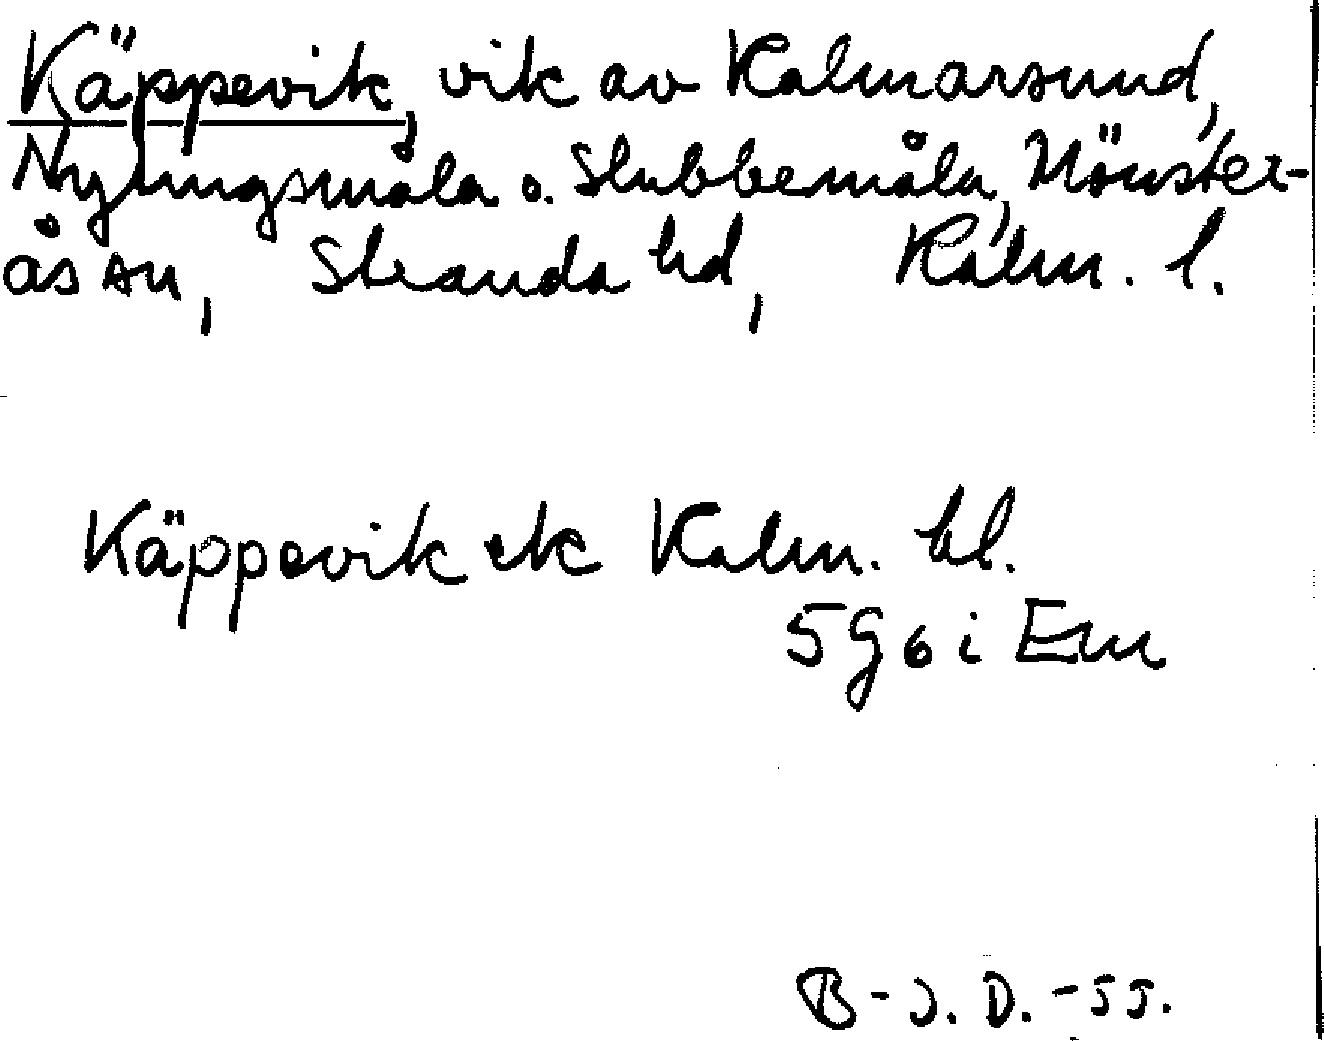 Käppevik, vik av Kalmarsund,
Nylingsmåla o. Stubbemåla, Mönster-
ås sn, Stranda hd, Kalm. l.
Käppevik ek Kalm. bl.
5 G 6 i Em
B-J. D. -55.